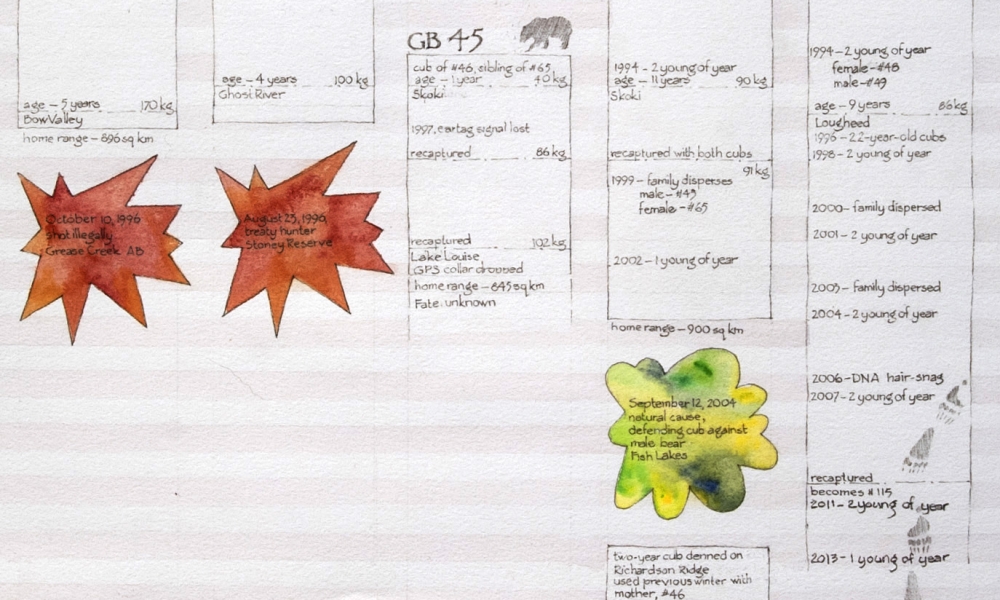 age – 5 years 170 kg
Bow Valley
home range – 696 sq km
October 10, 1996
shot illegally
Grease Creek AB
age – 4 years 190 kg
Ghost River
August 23, 1996
treaty hunter
Stoney Reserve
GB 45
cub of #46, sibling of #65
age – 1 year 40 kg
Skoki
1997, eartag signal lost
recaptured 86 kg
recaptured 102 kg
Lake Louise
GPS collar dropped
home range – 645 sq km
Fate: unknown
1994 – 2 young of year
age – 11 years 90 kg
Skoki
recaptured with both cubs
91 kg
1999 – family disperses
male – #45
female – #65
2002 – 1 young of year
home range – 900 sq km
September 12, 2004
natural cause,
defending cub against
male bear
Fish Lakes
two-year cub denned on
Richardson Ridge
used previous winter with
mother, #46
1994 – 2 young of year
female – #48
male – #49
age – 9 years 86 kg
Lougheed
1996 – 2 2-year-old cubs
1998 – 2 young of year
2000 – family dispersed
2001 – 2 young of year
2003 – family dispersed
2004 – 2 young of year
2006 – DNA hair-snag
2007 – 2 young of year
recaptured
becomes #115
2011 – 2 young of year
2013 – 1 young of year